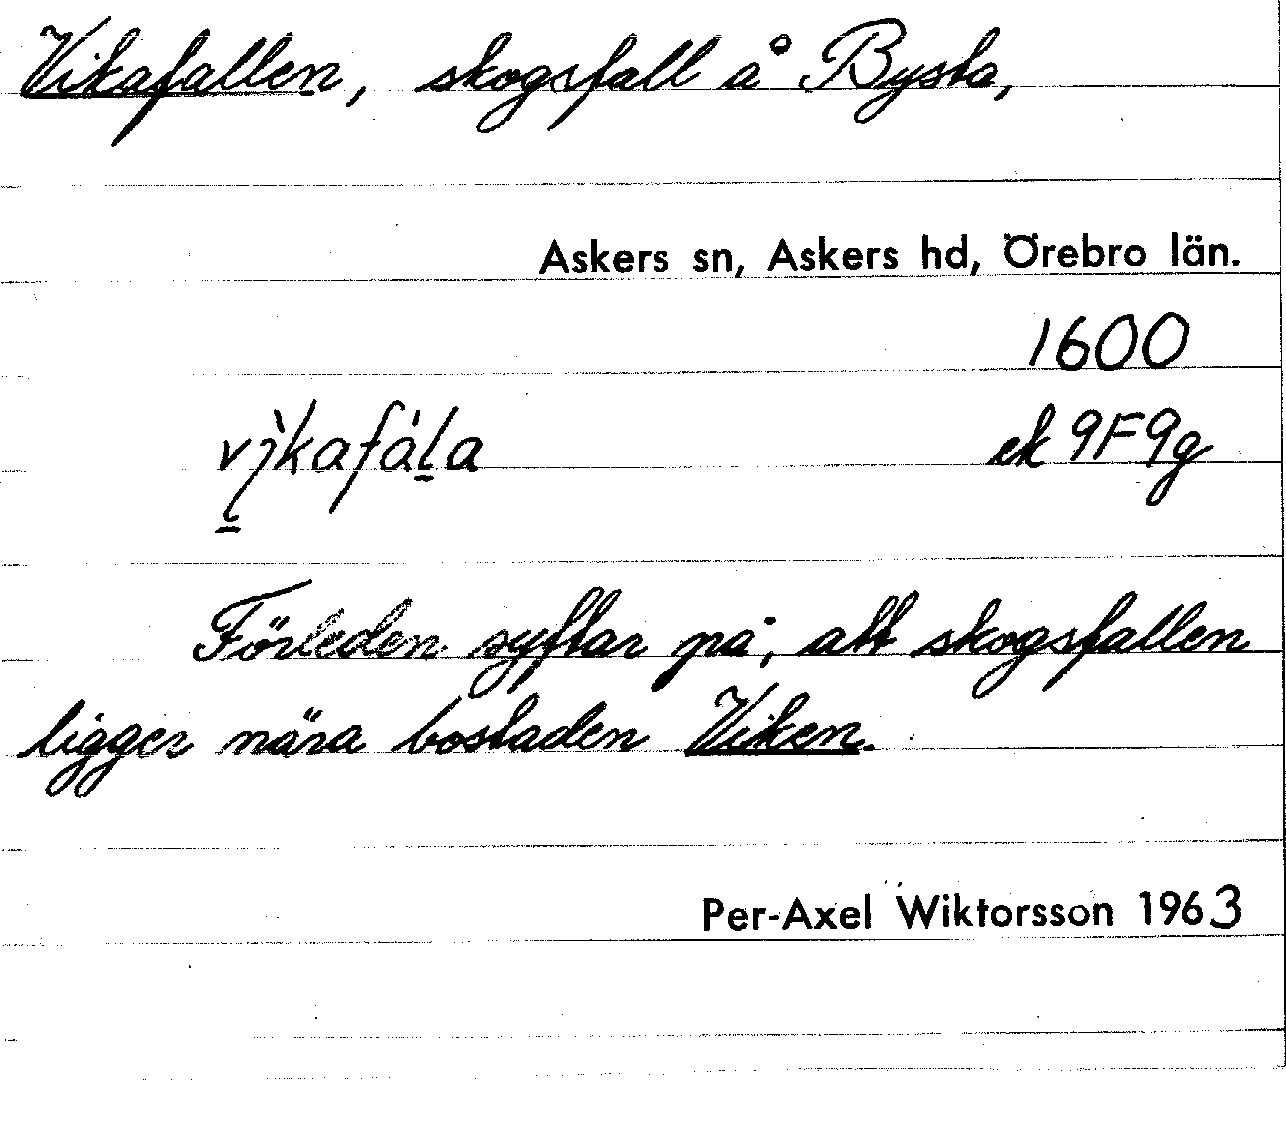 Vikafallen, skogsfall å Bysta,
Askers sn, Askers hd, Örebro län.
1600
vìkafála
ek 9F9g
Förleden syftar på, att skogsfallen
ligger nära bostaden Viken.
Per-Axel Wiktorsson 1963